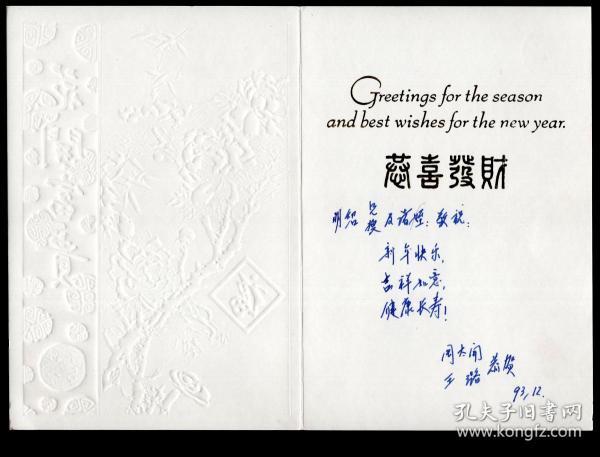 Greetings for the season
and best wishes for the new year.
恭喜發財
明绍 兄嫂 及诸侄：敬祝：
新年快乐，
吉祥如意，
健康长寿！
周大开
王璐 恭贺
93,12.
孔夫子旧书网
www.kongfz.com